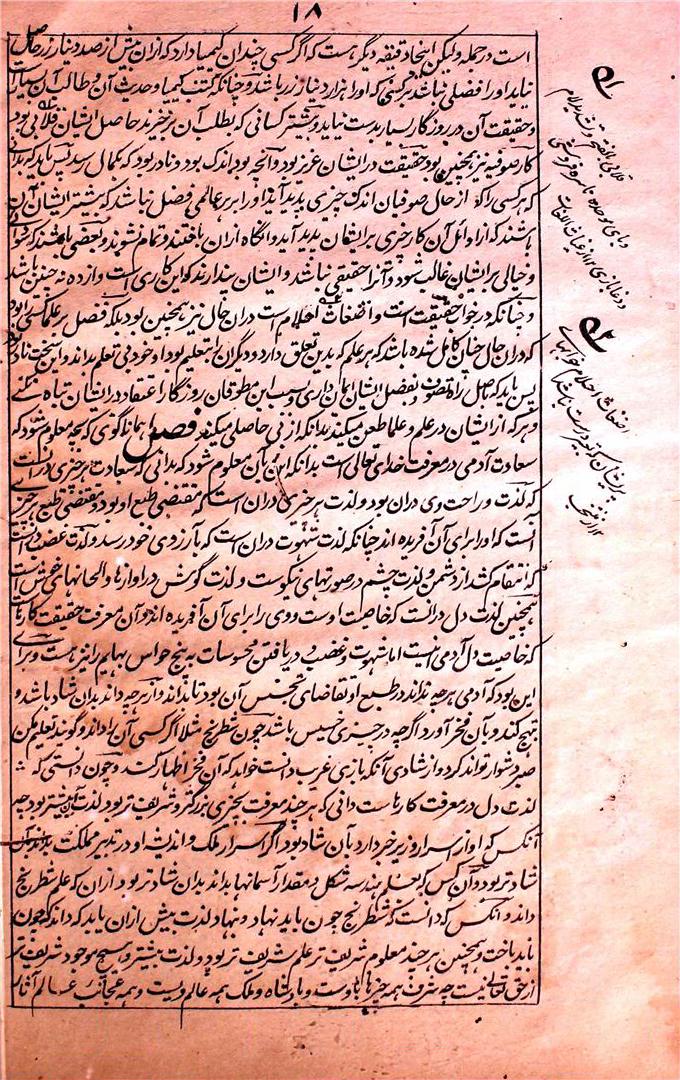 ۱۸
است درجمله ولیکن اینجا دقیقه دیگر هست که اگر کسی چندان کیمیا دارد که ازان بیش از صد دینار زر حاصل
نیاید او را فضلی نباشد بر کسی که او را هزار دینار زر باشد و چنانکه کتب کیمیا و حدیث آن و طالب آن بسیارست
و حقیقت آن در روزگار بسیار بدست نیاید و بیشتر کسانی که بطلب آن برخیزند حاصل ایشان قلابی بود
کار صوفیه نیز همچنین بود حقیقت در ایشان عزیز بود و آنچه بود اندک بود و نادر بود که بکمال رسد پس باید که بدانی
که هر کسی را که از حال صوفیان اندک چیزی پدید آید او را بر هر عالمی فضل نباشد که بیشتر ایشان آن
باشند که از اوائل آن کار چیزی بر ایشان پدید آید و آنگاه ازان بافتند و تمام نشوند و بعضی باشند که سودا
و خیالی بر ایشان غالب شود و آنرا حقیقی نباشد و ایشان پندارند که این کاری است و از ده نه چنین باشد
و چنانکه در خواب حقیقت است و اضغاث احلام است دران حال نیز همچنین بود بلکه فضل بر علما کسی را بود
که دران حال چنان کامل شده باشد که هر علم که بدین تعلق دارد و دیگران را بتعلیم بود او خود بی تعلم بداند و این سخت نادر بود
پس باید که باصل راه تصوف و بفضل ایشان ایمان داری و بسبب این مطوقان روزگار اعتقاد در ایشان تباه نکنی
و هر که از ایشان در علم و علما طعن میکند بدانکه از بی حاصلی میکند فصل همانا گوی که بچه معلوم شود که
سعادت آدمی در معرفت خدای تعالی است بدانکه این بآن معلوم شود که بدانی که سعادت هر چیزی در آنست
که لذت و راحت وی دران بود و لذت هر چیزی دران است که مقتضی طبع او بود و مقتضی طبع هر چیز
آنست که او را برای آن آفریده اند چنانکه لذت شهوت دران است که بآرزوی خود رسد و لذت غضب دانست
که انتقام کشد از دشمن و لذت چشم در صورتهای نیکوست و لذت گوش در آوازها و الحانهای خوش است
همچنین لذت دل درانست که خاصیت اوست و وی را برای آن آفریده اند و آن معرفت حقیقت کارهاست
که خاصیت دل آدمی اینست اما شهوت و غضب و دریافتن محسوسات به پنج حواس بهایم را نیز هست و برای
این بود که آدمی هر چه نداند در طبع او تقاضای تجسس آن بود تا بداند و از هر چه داند بدان شاد باشد و
تبجح کند و بآن فخر آورد اگرچه در چیزی خسیس باشد چون شطرنج مثلا اگر کسی آن را داند و گویند تعلیم مکن
صبر دشوار تواند کرد و از شادی آنکه بازی غریب دانست خواهد که آن فخر اظهار کند و چون دانستی که
لذت دل در معرفت کارهاست دانی که هر چند معرفت بچیزی بزرگتر و شریف تر بود لذت آن بیشتر بود چه
آنکس که او از اسرار وزیر خبر دارد بآن شاد بود اگر اسرار ملک و اندیشه او در تدبیر مملکت بداند بآن
شاد تر بود و آن کس که بعلم هندسه شکل و مقدار آسمانها بداند بدان شاد تر بود ازان که علم شطرنج
داند و آنکس که دانست که شطرنج چون باید نهاد و نهاد لذت بیش ازان یابد که داند که چون
باید باخت و همچنین هر چند معلوم شریف تر علم شریف تر بود و لذت بیشتر و هیچ موجود شریف تر
از حق تعالی نیست چه شرف همه چیزها باوست و بادشاه و ملک همه عالم ویست و همه عجائب عالم آثار
قلابی بالفتح و تشدید لام
و بای موحده ناسره فروشی
و دغابازی ۱۲ از غیاث اللغات
اضغاث احلام خوابهای
پریشان که تعبیر درست نباشد
۱۲ از منتخب